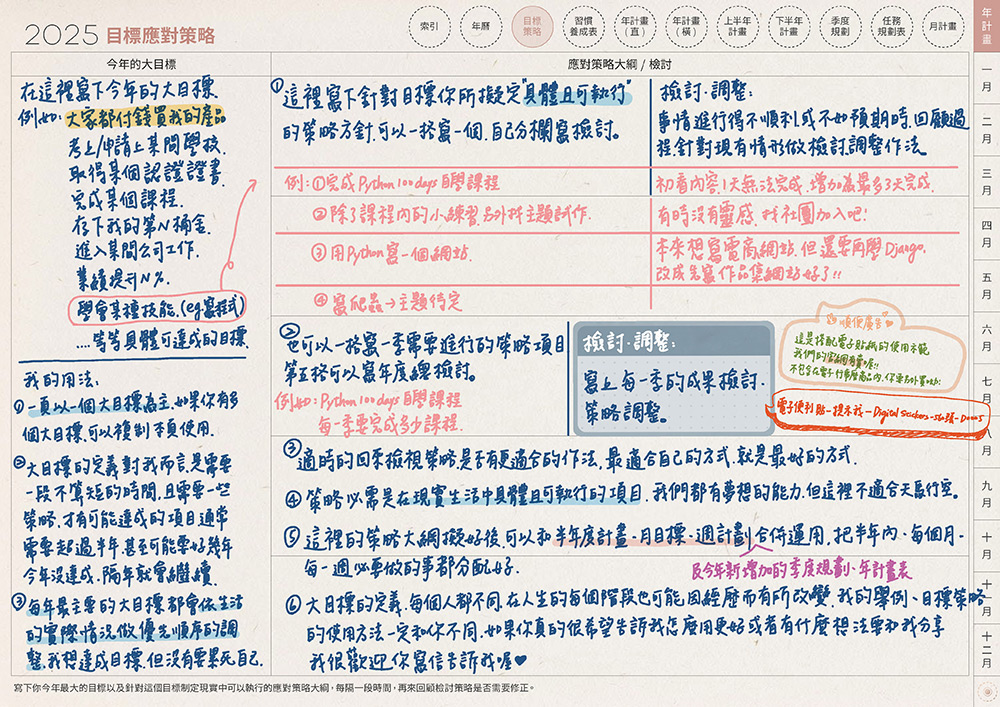 2025 目標應對策略
索引
年曆
目標
策略
習慣
養成表
年計畫
(直)
年計畫
(橫)
上半年
計畫
下半年
計畫
季度
規劃
任務
規劃表
月計畫
年計畫
今年的大目標
應對策略大綱 / 檢討
在這裡寫下今年的大目標.
例如: 大家都付錢買我的產品
考上/申請上某間學校.
取得某個認證證書.
完成某個課程.
存下我的第N桶金.
進入某間公司工作.
業績提升N%.
學會某種技能.(eg.寫程式)
....等等具體可達成的目標.
我的用法:
①一頁以一個大目標為主.如果你有多
個大目標.可以複製本頁使用.
②大目標的定義對我而言.是需要
一段不算短的時間.且需要一些
策略.才有可能達成的項目.通常
需要超過半年.甚至可能要好幾年
今年沒達成.隔年就會繼續.
③每年最主要的大目標.都會依生活
的實際情況做優先順序的調
整.我想達成目標.但沒有要累死自己.
①這裡寫下針對目標你所擬定"具體且可執行"
的策略方針.可以一格寫一個.自己分欄寫檢討。
檢討.調整:
事情進行得不順利或不如預期時.回顧過
程.針對現有情形做檢討.調整作法.
例:①完成Python 100 days 自學課程
初看內容.1天無法完成.增加為最多3天完成.
②除了課程內的小練習.另外找主題試作.
有時沒有靈感.找社團加入吧!
③用Python寫一個網站.
本來想寫電商網站.但還要再學Django.
改成先寫作品集網站好了!!
④寫爬蟲→主題待定
②也可以一格寫一季需要進行的策略項目
第五格可以寫年度總檢討。
例如:Python 100 days 自學課程
每一季要完成多少課程.
檢討.調整:
寫上每一季的成果檢討.
策略調整。
順便廣告
這是搭配電子貼紙的使用示範
電子便利貼-提示我-Digital Stickers-
③適時的回來檢視策略是否有更適合的作法,最適合自己的方式.就是最好的方式.
④策略必需是在現實生活中具體且可執行的項目.我們都有夢想的能力.但這裡不適合天馬行空。
⑤這裡的策略大綱擬好後.可以和半年度計畫-月目標-週計劃合併運用.把半年內、每個月、
每一週必要做的事都分配好.
及今年新增加的季度規劃、年計畫表
⑥大目標的定義.每個人都不同.在人生的每個階段也可能因經歷而有所改變.我的舉例、目標策略
的使用方法一定和你不同.如果你真的很希望告訴我怎麼用更好或者有什麼想法要和我分享
我很歡迎你寫信告訴我喔♥
一月
二月
三月
四月
五月
六月
七月
八月
九月
十月
十一月
十二月
寫下你今年最大的目標以及針對這個目標制定現實中可以執行的應對策略大綱，每隔一段時間，再來回顧檢討策略是否需要修正。